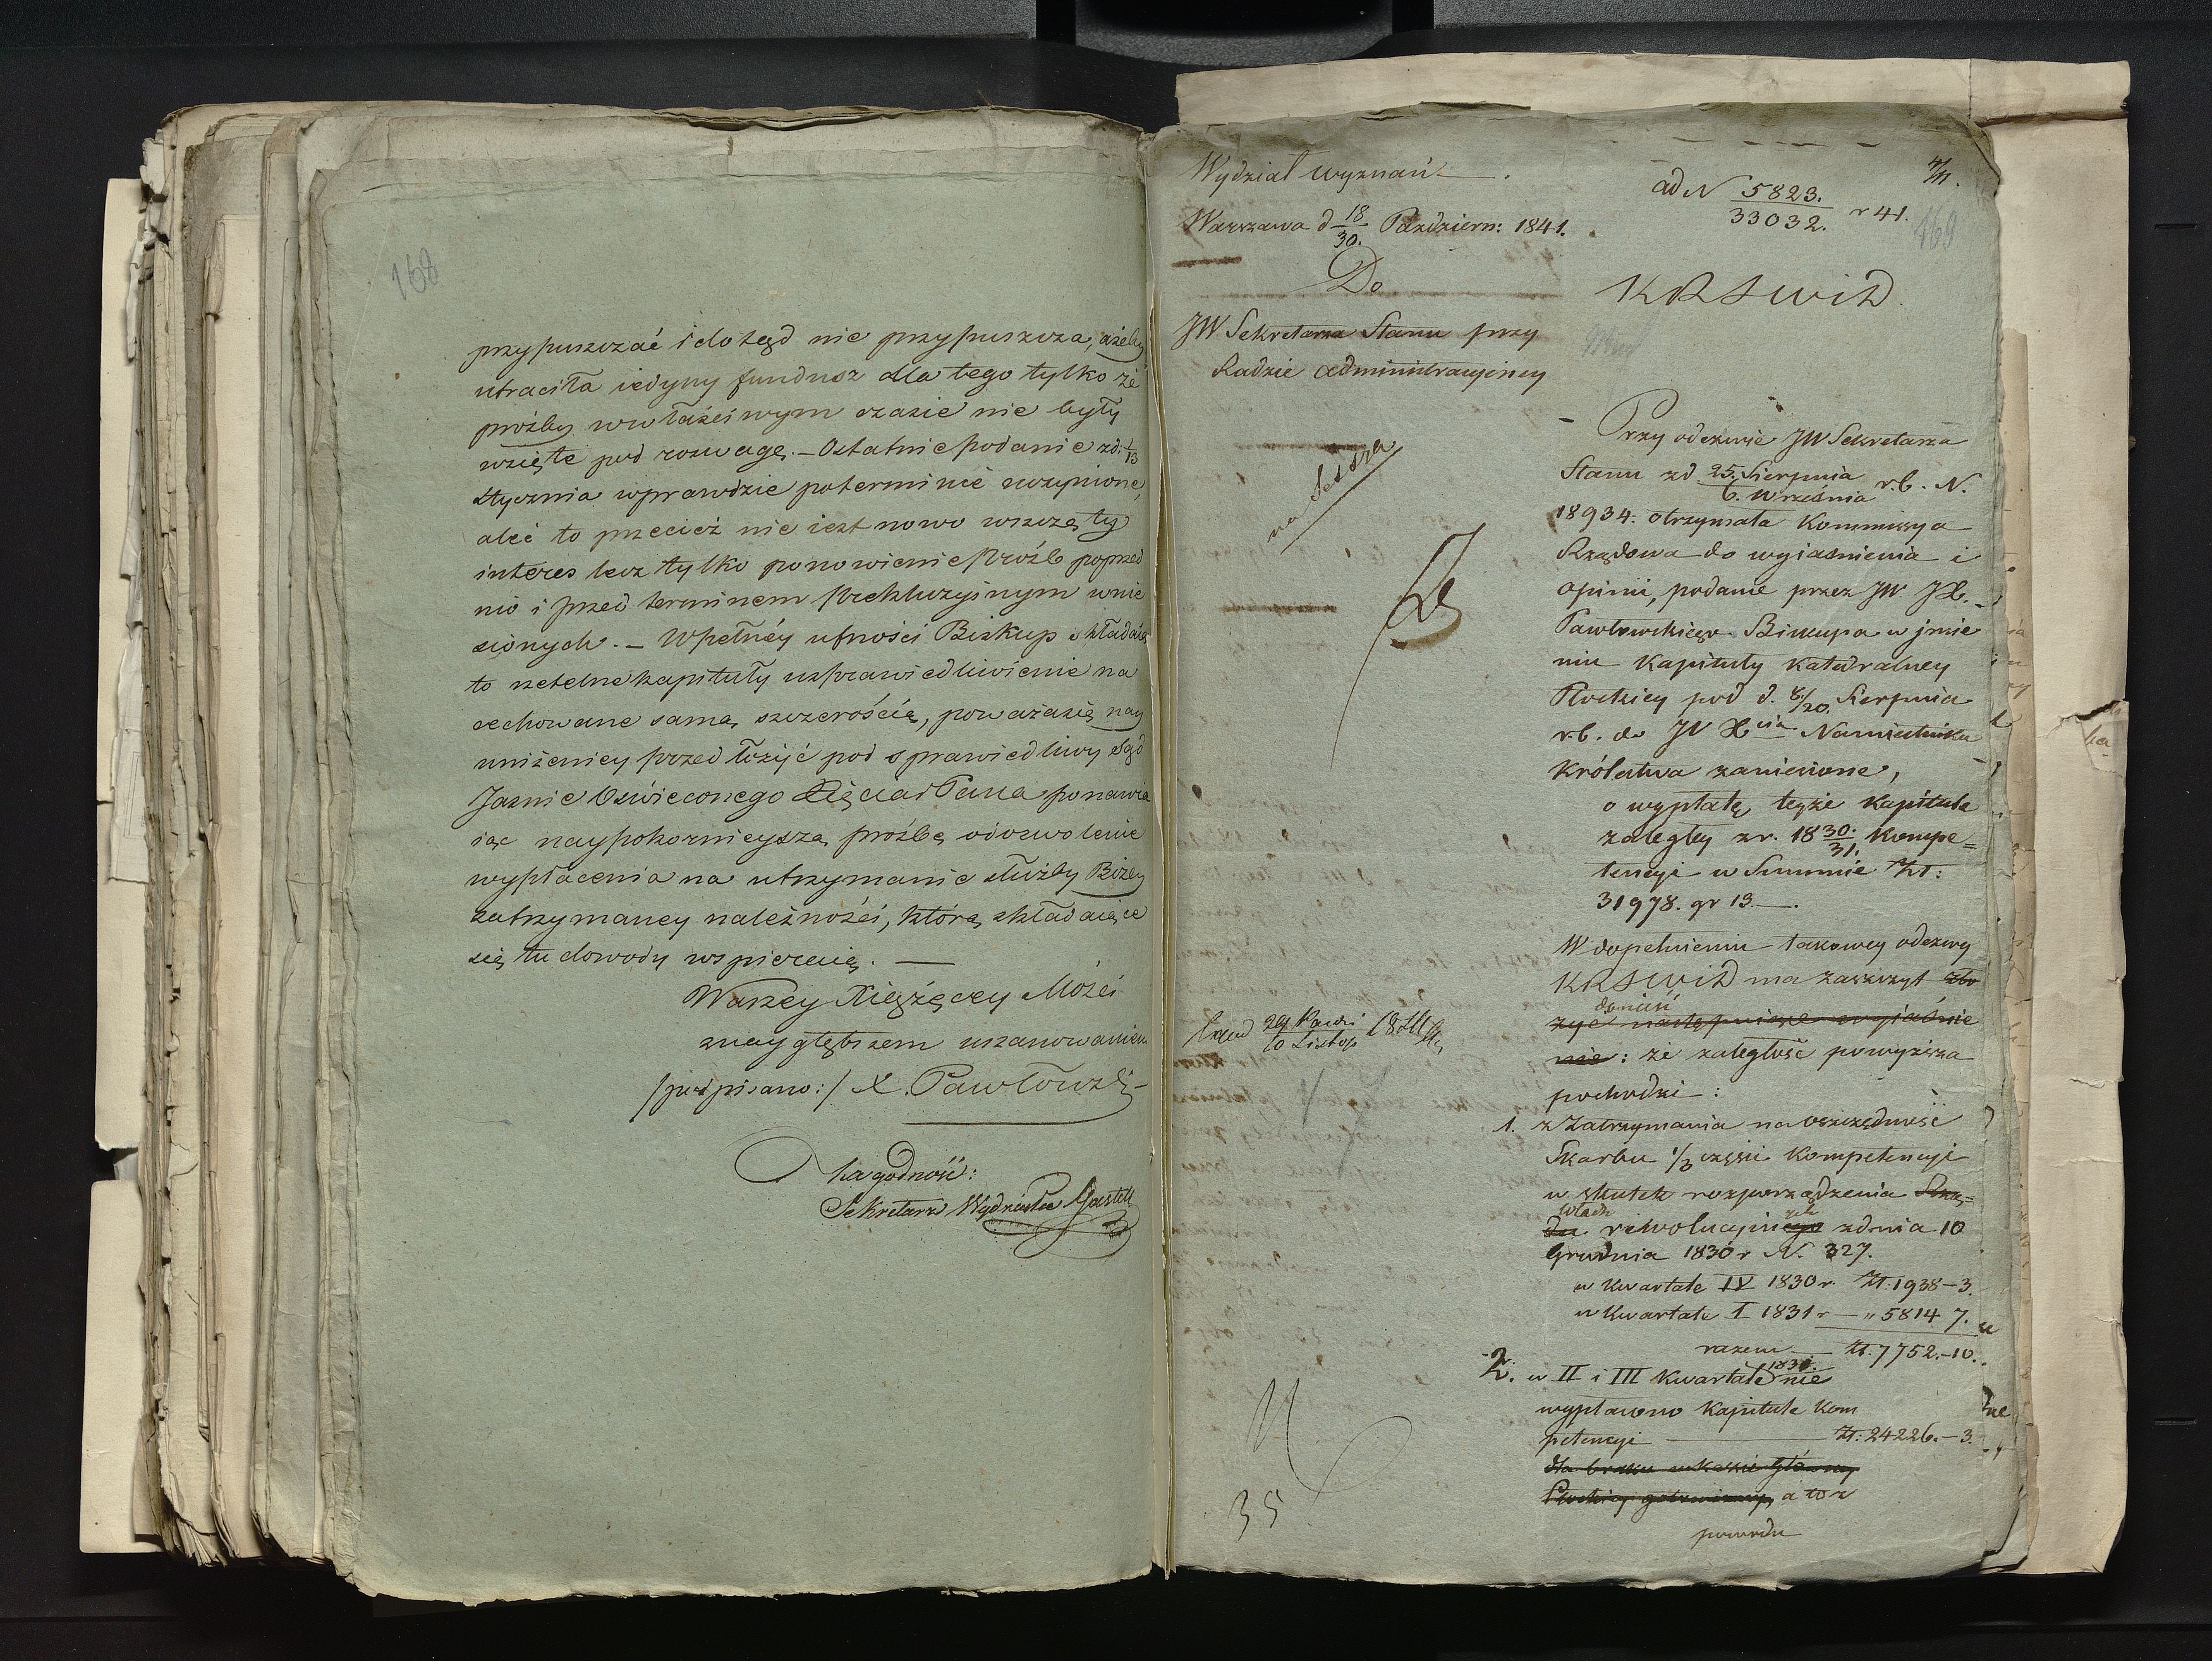 168
przypuszczać i dotąd nie przypuszcza, ażeby
utraciła iedyny fundusz dla tego tylko że
prośby wwłaściwym czasie nie były
wzięte pod rozwagę. – Ostatnie podanie zd. 1/13
stycznia wprawdzie poterminie uczynione,
aleć to przecież nie iest nowo wszczęty
interes lecz tylko ponowienie próśb poprzed
nio i przed terminem prekluzyinym wnie
sionych. – Wpełnéy ufności Biskup składaiąc
to rzetelne kapituły usprawiedliwienie na
cechowane samą szczerością, poważasię nay
uniżeniey przedłożyć pod sprawiedliwy Sąd
Jaśnie Oświeconego Xięcia Pana ponawia
iąc naypokornieyszą proźbę odozwolenie
wypłacenia na utrzymanie służby Bożey
zatrzymaney należności, którą składaiące
się tu dowody wspieraią. —
Waszey Xiążęcey Mości
znaygłębszem uszanowaniem
/podpisano:/ X. Pawłowski
Za zgodność:
Sekretarz Wydziału
Wydział wyznań
Warszawa d 18/30. Październ: 1841.
Do
JW Sekretarza Stanu przy
Radzie administracyiney
ad N 5823./33032. r 41.
169
KRSWiD.
na Sessza
Przy odezwie JW Sekretarza
Stanu zd 25. Sierpnia/6. Września r.b. N.
18934. otrzymała Kommissya
Rządowa do wyiaśnienia i
opinii, podanie przez JW. JX.
Pawłowskiego Biskupa w jmie
niu Kapituły katedralney
Płockiey pod d. 8/20. Sierpnia
r.b. do JO Xcia Namiestnika
Królestwa zaniesione,
o wypłatę teyże kapitule
zaległey z r. 1830./31. kompe=
tencyi w Summie Zł:
31978. gr 13.—.
W dopełnieniu takowey odezwy
KRSWiD ma zaszczyt zło
donieść
żyć następuiące wyiaśnie
nie: że zaległość powyższa
pochodzi:
1. z Zatrzymania na oszczędność
Skarbu 1/3 części Kompetencyi
w skutek rozporządzenia Rzą=
Władz
du rewolucyinego zdnia 10
ych
Grudnia 1830 r N. 327.
w Kwartale IV 1830 r. Zł: 1938–3.
w Kwartale I 1831 r — „ 5814 7.
razem — Zł. 7752.–10.
1831
2. w II i III Kwartale nie
wypłacono Kapitule Kom
petencyi — Zł: 24226.–3.
dla braku w kassie Główney
Płockiey gotowizny, a to z
powodu
29 Paźdz/10 Listop 1841
35